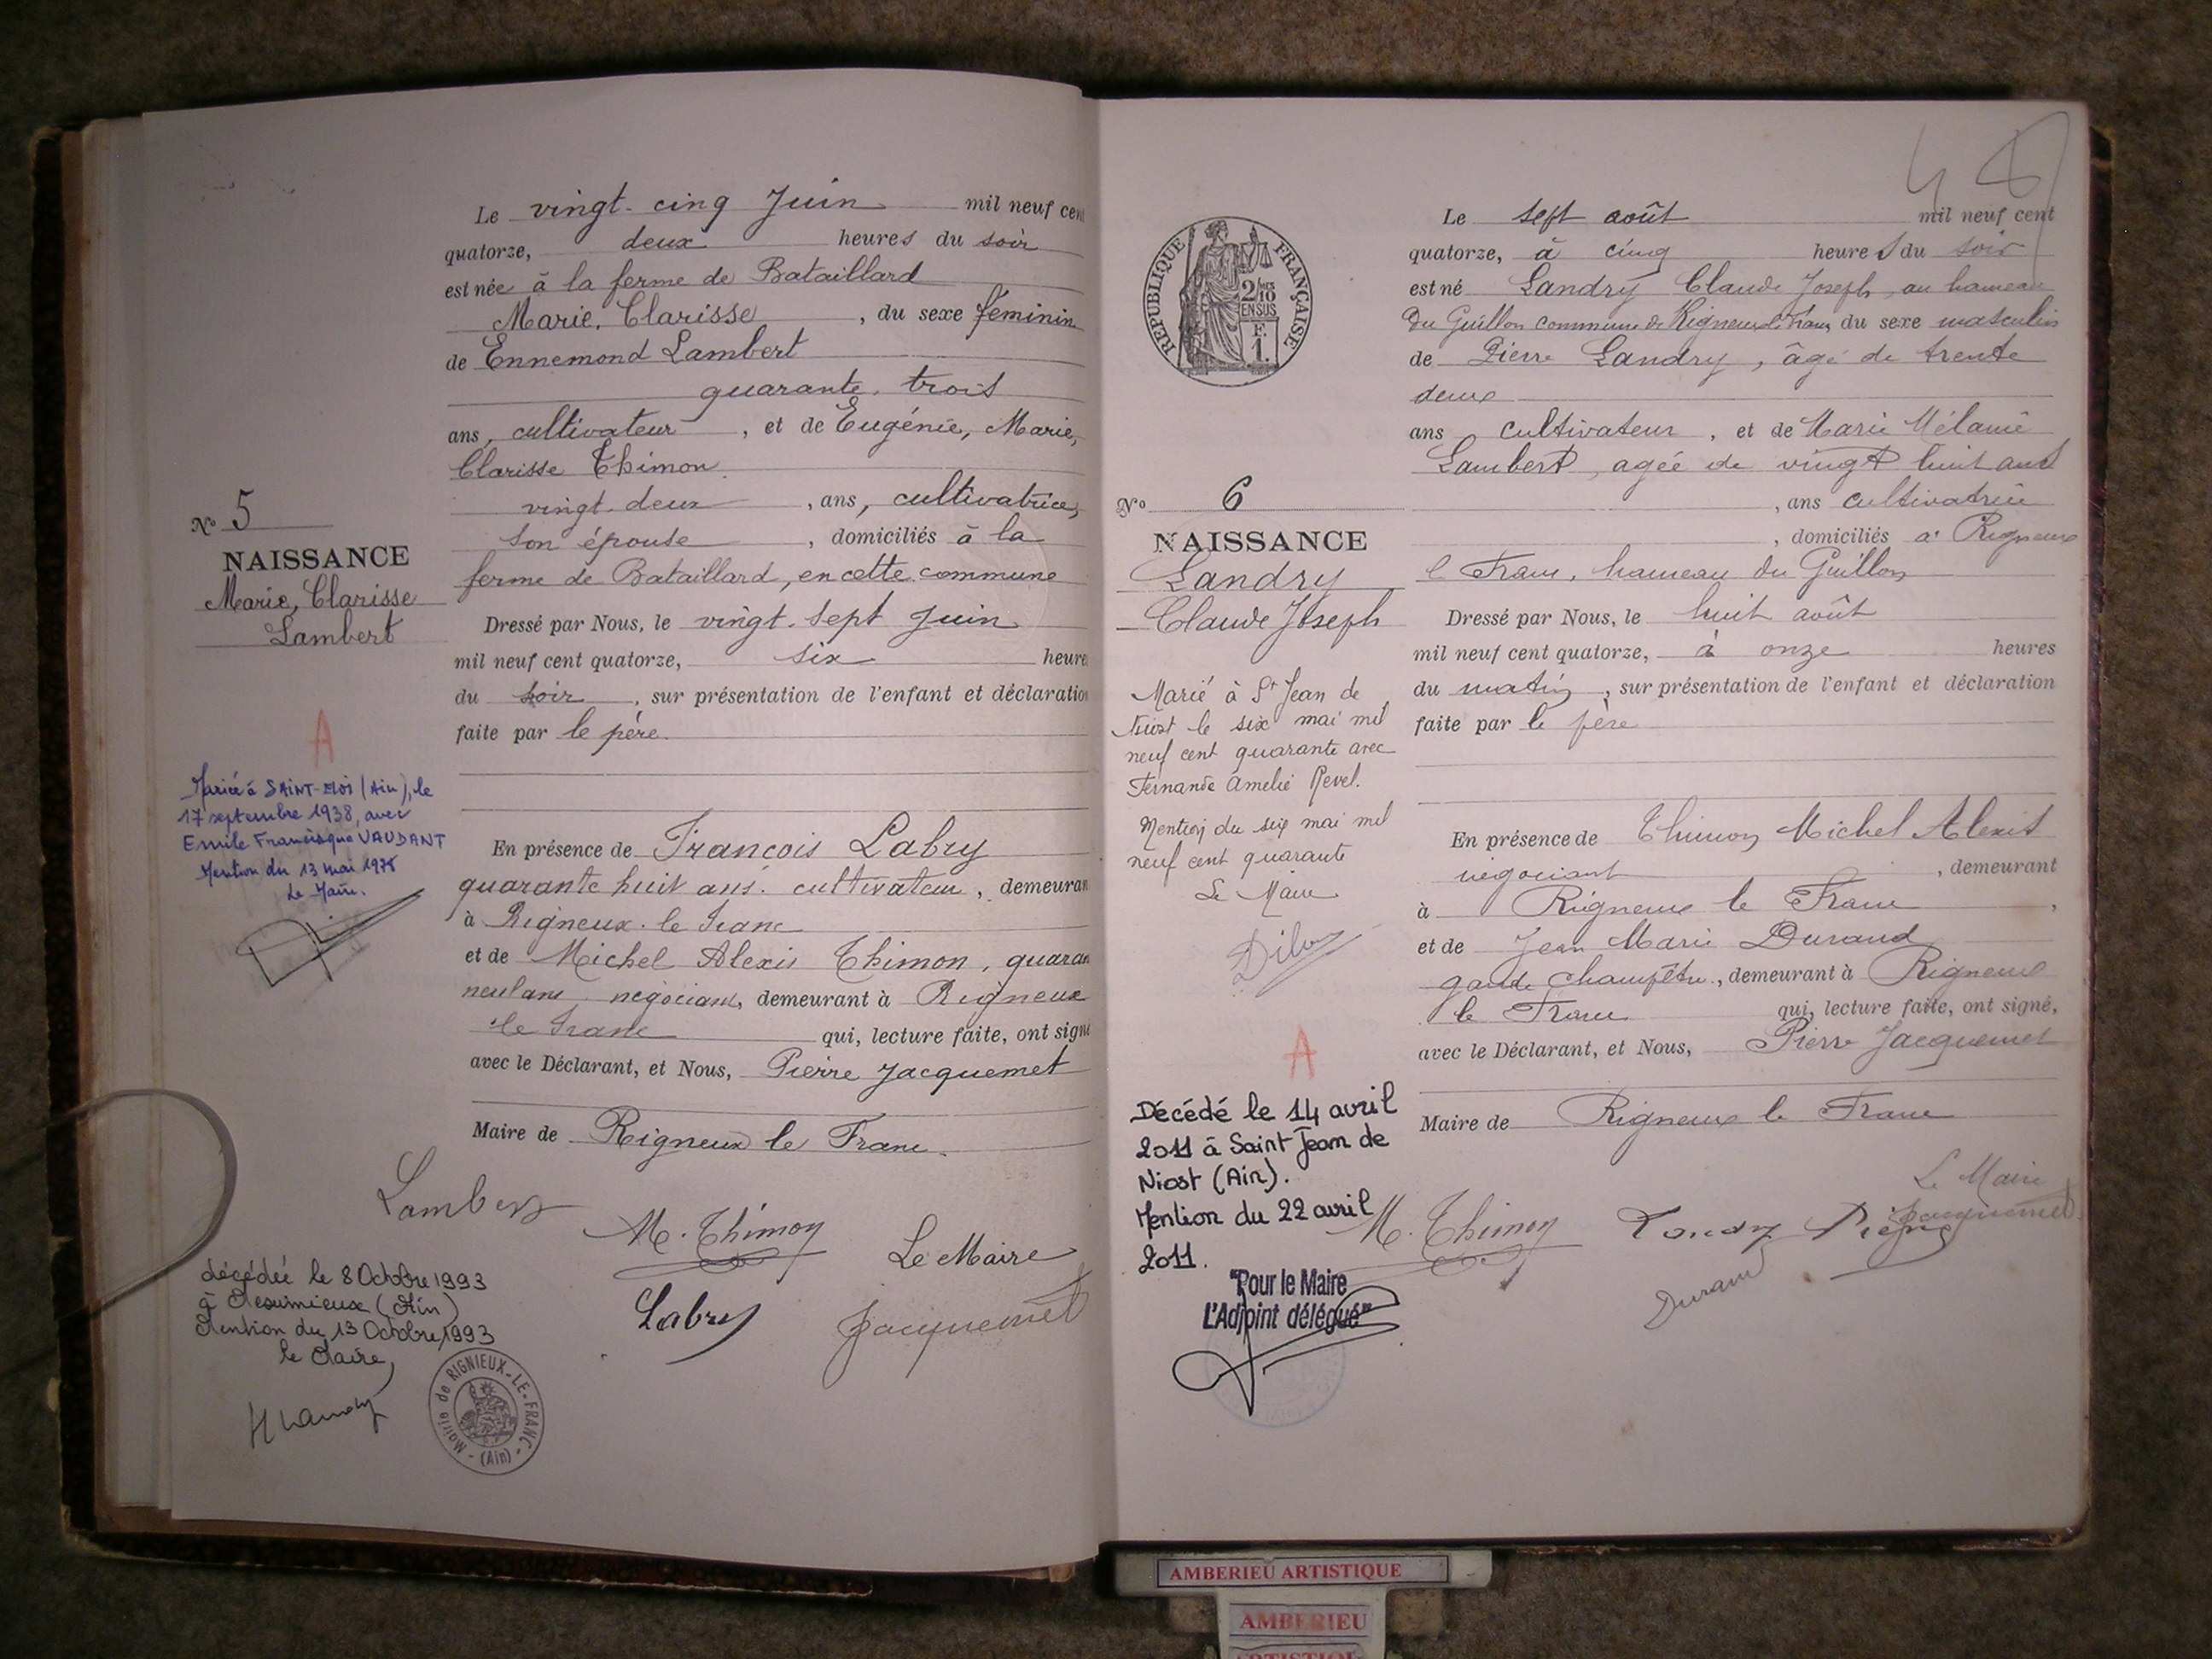 Le vingt-cinq Juin mil neuf cen
quatorze, deux heures du soir
est née à la ferme de Bataillard
Marie, Clarisse, du sexe féminin
de Ennemond Lambert
quarante, trois
ans, cultivateur, et de Eugénie, Marie,
Clarisse Thimon
vingt-deux, ans, cultivatrice,
son épouse, domiciliés à la
ferme de Bataillard, en cette commune
Dressé par Nous, le vingt-sept Juin
mil neuf cent quatorze, six heure
du soir, sur présentation de l'enfant et déclaration
faite par le père.
En présence de François Labry
quarante huit ans. cultivateur, demeuran
à Rigneux-le-Franc
et de Michel Alexis Thimon, quaran
neuf ans, négociant, demeurant à Rigneux
le Franc qui, lecture faite, ont signé
avec le Déclarant, et Nous, Pierre Jacquemet
Maire de Rigneux le Franc.
Lambert
M. Thimon
Le Maire
Labry
Jacquemet
N° 5
NAISSANCE
Marie, Clarisse
Lambert
A
Mariée à SAINT-ELOI (Ain), le
17 septembre 1938, avec
Emile Francisque VAUDANT
Mention du 13 mai 1978
Le Maire.
décédée le 8 Octobre 1993
à Meximieux (Ain)
Mention du 13 Octobre 1993
le Maire,
Mairie de RIGNIEUX-LE-FRANC
(Ain)
48
RÉPUBLIQUE FRANÇAISE
2/10
EN SUS
F.
1.
Le sept août mil neuf cent
quatorze, à cinq heures du soir
est né Landry Claude Joseph, au hameau
Du Guillon commune de Rigneux le Franc du sexe masculin
de Pierre Landry, âgé de trente
deux
ans cultivateur, et de Marie Mélanie
Lambert, agée de vingt huit ans
, ans cultivatrice
, domiciliés à Rigneux
le Franc, hameau du Guillon
Dressé par Nous, le huit août
mil neuf cent quatorze, à onze heures
du matin, sur présentation de l'enfant et déclaration
faite par le père
En présence de Thimon Michel Alexis
négociant, demeurant
à Rigneux le Franc,
et de Jean Marie Durand
garde champêtre, demeurant à Rigneux
le Franc qui, lecture faite, ont signé,
avec le Déclarant, et Nous, Pierre Jacquemet
Maire de Rigneux le Franc
Le Maire
Jacquemet
M. Thimon
Landry Pierre
Durand
N° 6
NAISSANCE
Landry
Claude Joseph
Marié à St Jean de
Niost le six mai mil
neuf cent quarante avec
Fernande Amélie Revel.
Mention du six mai mil
neuf cent quarante
Le Maire
A
Décédé le 14 avril
2011 à Saint Jean de
Niost (Ain).
Mention du 22 avril
2011.
"Pour le Maire
L'Adjoint délégué"
AMBERIEU ARTISTIQUE
AMBERIEU
ARTISTIQUE